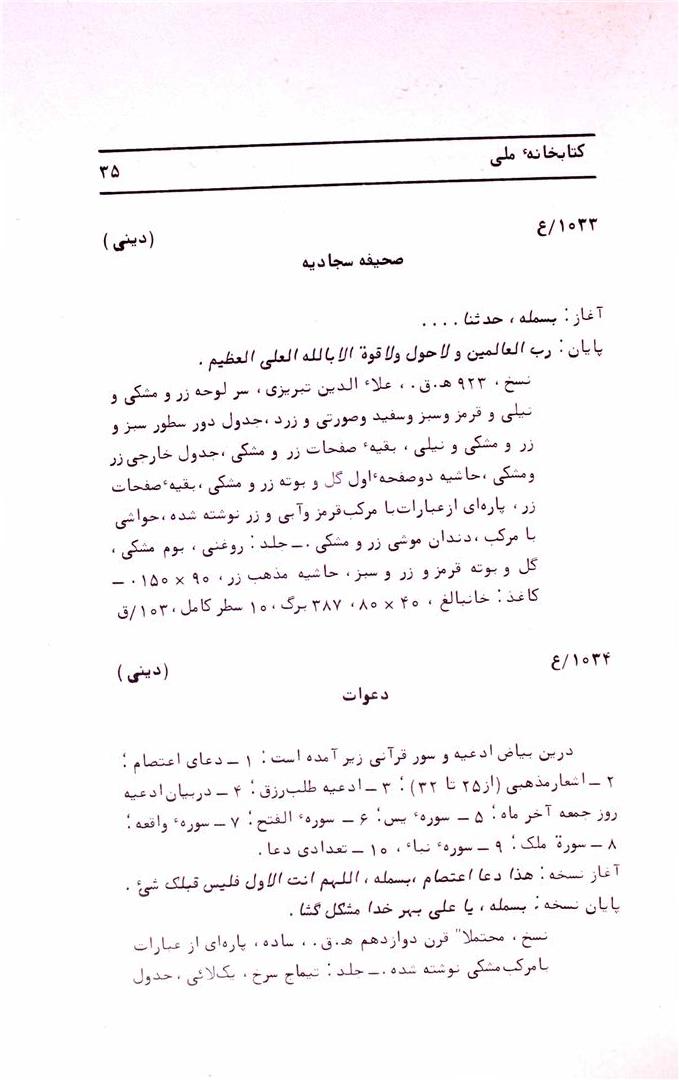 کتابخانهٔ ملی
۳۵
۱۰۳۳/ع
(دینی)
صحیفه سجادیه
آغاز: بسمله، حدثنا....
پایان: رب العالمین و لاحول ولاقوة الابالله العلی العظیم.
نسخ، ۹۲۳ هـ.ق.، علاء الدین تبریزی، سر لوحه زر و مشکی و
نیلی و قرمز وسبز وسفید وصورتی و زرد،جدول دور سطور سبز و
زر و مشکی و نیلی، بقیهٔ صفحات زر و مشکی،جدول خارجی زر
ومشکی،حاشیه دوصفحهٔ اول گل و بوته زر و مشکی،بقیهٔ صفحات
زر، پاره‌ای ازعبارات با مرکب قرمز وآبی و زر نوشته شده،حواشی
با مرکب،دندان موشی زر و مشکی.ــ جلد: روغنی، بوم مشکی،
گل و بوته قرمز و زر و سبز، حاشیه مذهب زر، ۹۰ × ۱۵۰. ــ
کاغذ: خانبالغ، ۴۰ × ۸۰، ۳۸۷ برگ، ۱۰ سطر کامل، ۱۰۳/ق
۱۰۳۴/ع
(دینی)
دعوات
درین بیاض ادعیه و سور قرآنی زیر آمده است: ۱ ــ دعای اعتصام؛
۲ ــ اشعارمذهبی (از۲۵ تا ۳۲)؛ ۳ ــ ادعیه طلب رزق؛ ۴ ــ دربیان ادعیه
روز جمعه آخر ماه؛ ۵ ــ سورهٔ یس؛ ۶ ــ سورهٔ الفتح؛ ۷ ــ سورهٔ واقعه؛
۸ ــ سورة ملک؛ ۹ ــ سورهٔ نباء، ۱۰ ــ تعدادی دعا.
آغاز نسخه: هذا دعا اعتصام،بسمله، اللهم انت الاول فلیس قبلک شیء.
پایان نسخه: بسمله، یا علی بهر خدا مشکل گشا.
نسخ، محتملا" قرن دوازدهم هـ.ق.، ساده، پاره‌ای از عبارات
بامرکب مشکی نوشته شده.ــ جلد: تیماج سرخ، یک‌لائی، جدول